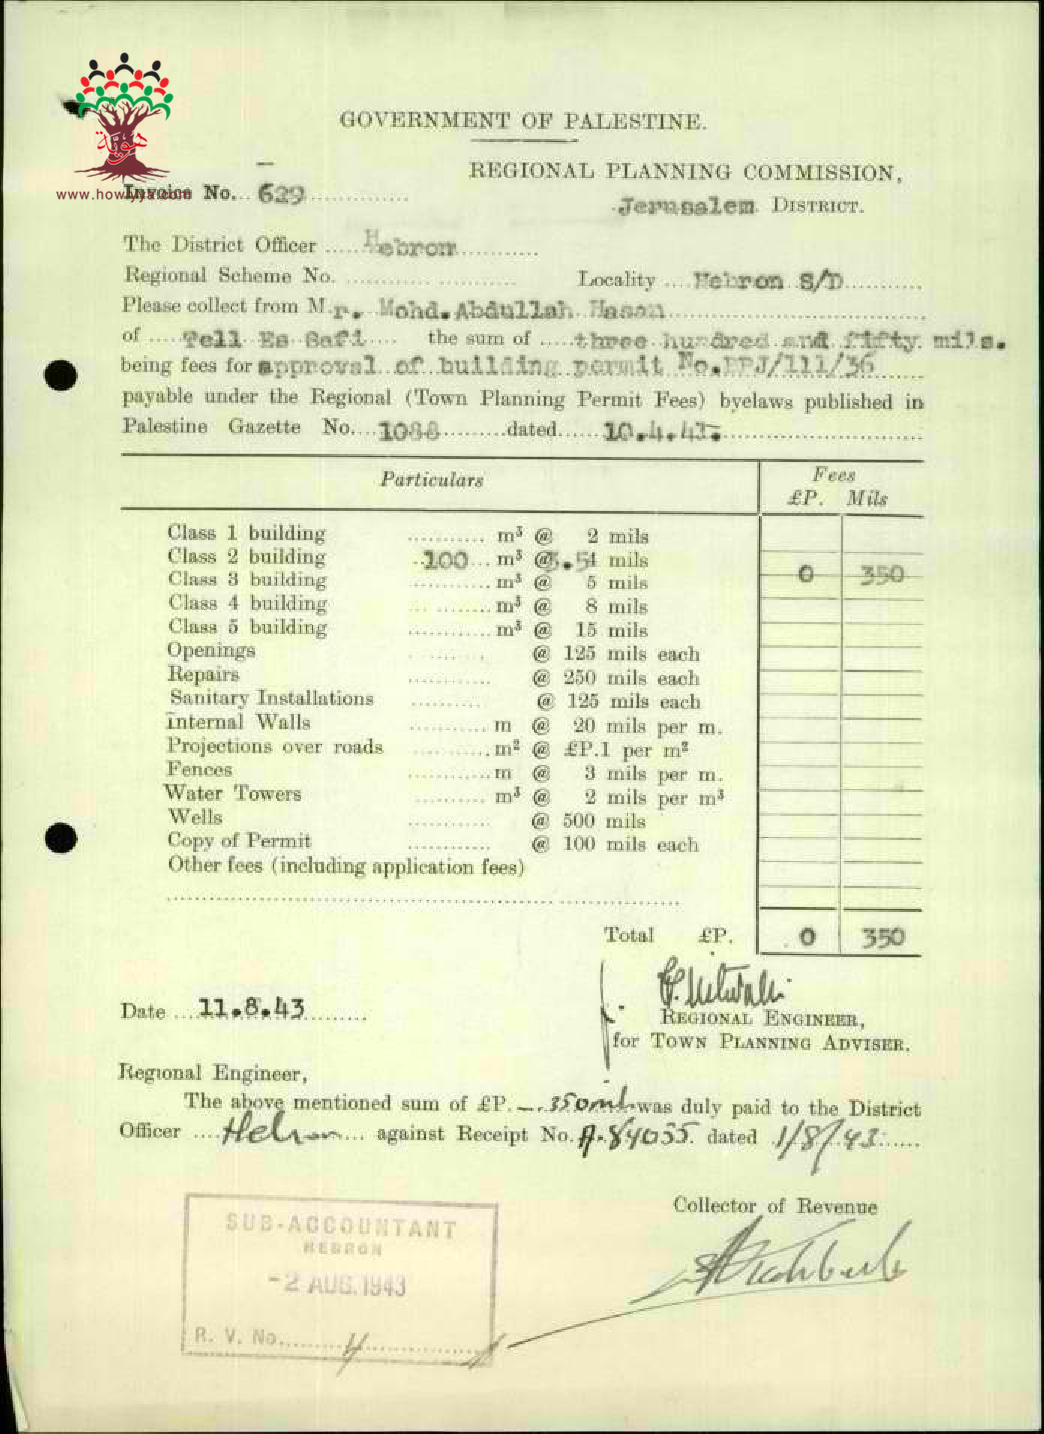 هوية
www.howiyya.com
GOVERNMENT OF PALESTINE.
REGIONAL PLANNING COMMISSION,
Invoice No. 629
Jerusalem DISTRICT.
The District Officer Hebron
Regional Scheme No. Locality Hebron S/D
Please collect from Mr. Mohd. Abdullah Hasan
of Tell Es Safi the sum of three hundred and fifty mils.
being fees for approval of building permit No. /111/36
payable under the Regional (Town Planning Permit Fees) byelaws published in
Palestine Gazette No. 1088 dated 10.4.41.
Particulars Fees
£P. Mils
Class 1 building m³ @ 2 mils
Class 2 building 100 m³ @ 3.5 4 mils 0 350
Class 3 building m³ @ 5 mils
Class 4 building m³ @ 8 mils
Class 5 building m³ @ 15 mils
Openings @ 125 mils each
Repairs @ 250 mils each
Sanitary Installations @ 125 mils each
Internal Walls m @ 20 mils per m.
Projections over roads m² @ £P.1 per m²
Fences m @ 3 mils per m.
Water Towers m³ @ 2 mils per m³
Wells @ 500 mils
Copy of Permit @ 100 mils each
Other fees (including application fees)
Total £P. 0 350
Date 11.8.43
REGIONAL ENGINEER,
for TOWN PLANNING ADVISER.
Regional Engineer,
The above mentioned sum of £P. -.350 mls was duly paid to the District
Officer Hebron against Receipt No. A.84035 dated 1/8/43
Collector of Revenue
SUB-ACCOUNTANT
HEBRON
-2 AUG. 1943
R. V. No. 4